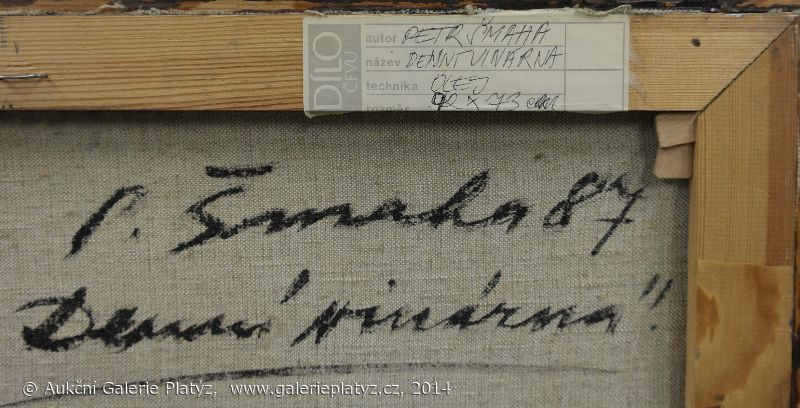 DÍLO
ČFVU
autor PETR ŠMAHA
název DENNÍ VINÁRNA
technika OLEJ
rozměr x 73 cm
P. Šmaha 87
Denní vinárna"
© Aukční Galerie Platýz, www.galerieplatyz.cz, 2014